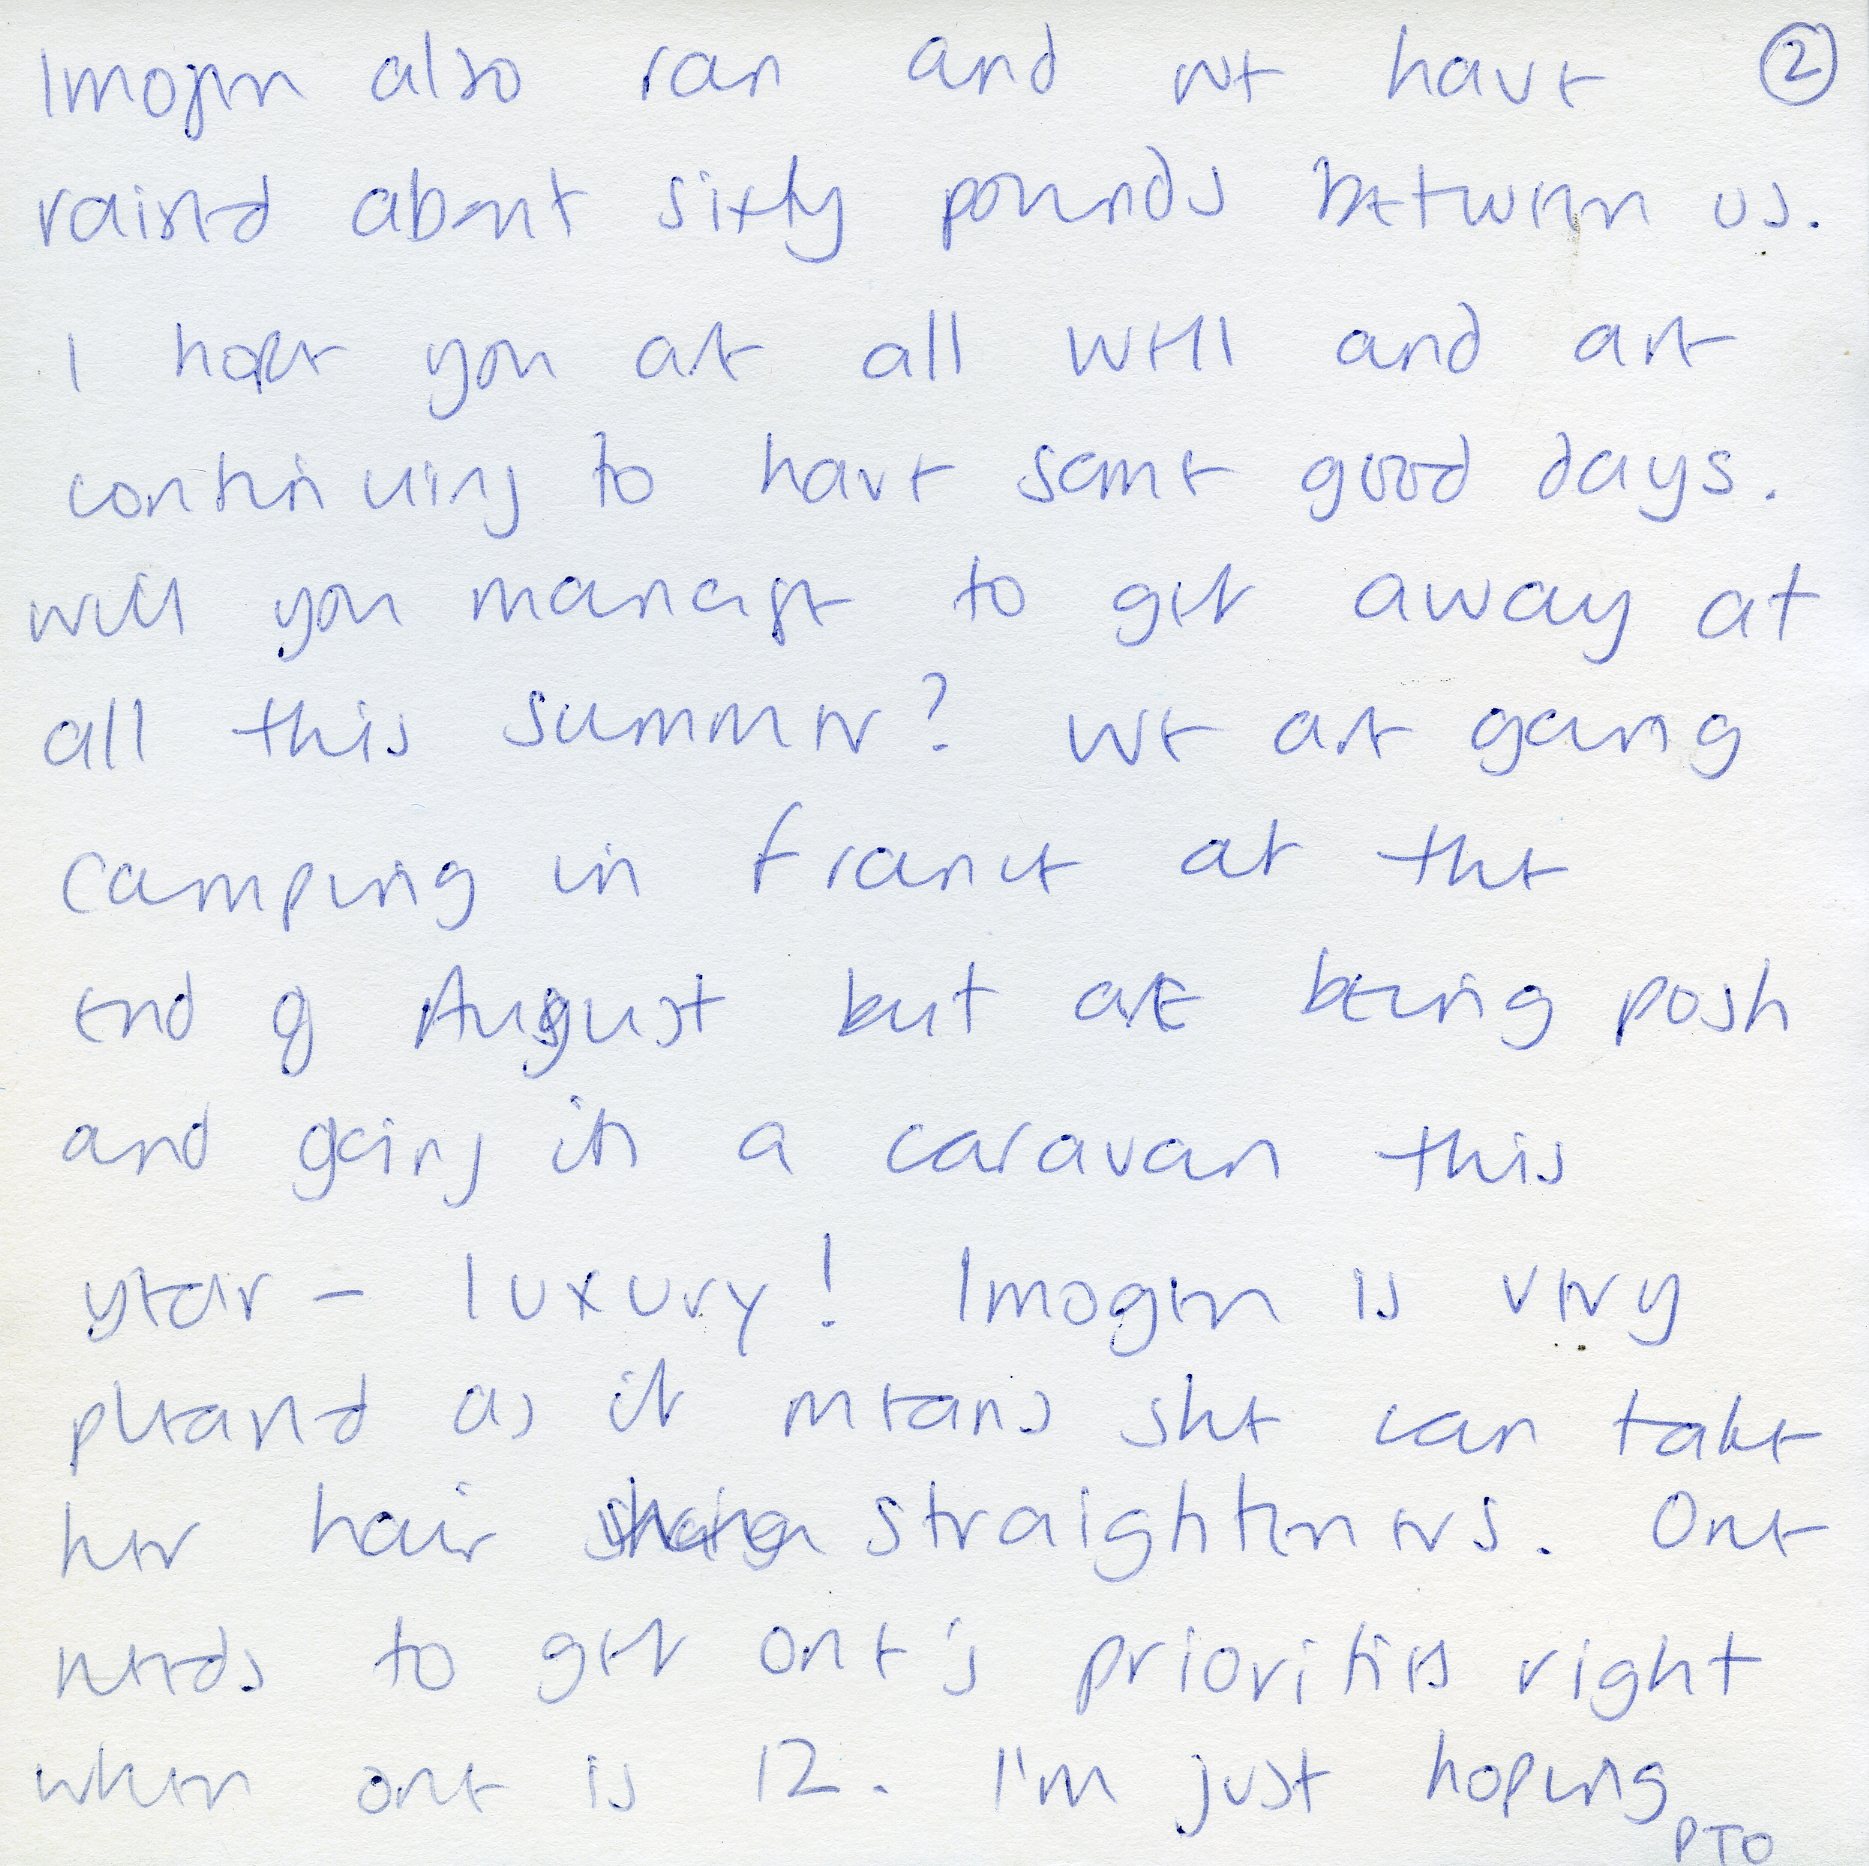 Imogen also ran and we have ②
raised about sixty pounds between us.
I hope you are all well and are
continuing to have some good days.
will you manage to get away at
all this summer? We are going
camping in france at the
end of August but are being posh
and going in a caravan this
year - luxury! Imogen is very
pleased as it means she can take
her hair straighteners. One
needs to get one's priorities right
when one is 12. I'm just hoping
PTO